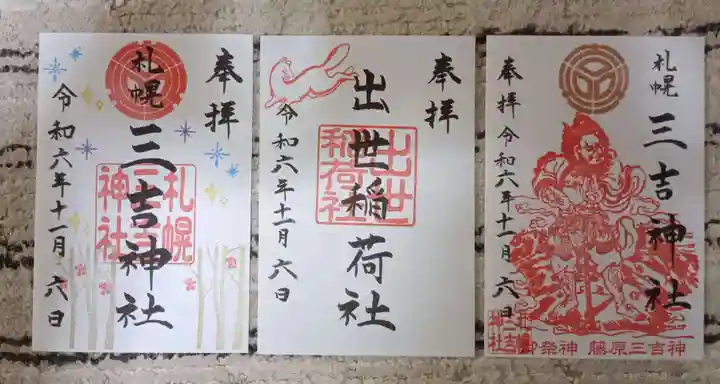 奉拝
札幌
三吉神社
令和六年十一月六日
札幌
三吉
神社
奉拝
出世稲荷社
令和六年十一月六日
出世
稲荷社
札幌
三吉神社
奉拝 令和六年十一月六日
御祭神 藤原三吉神